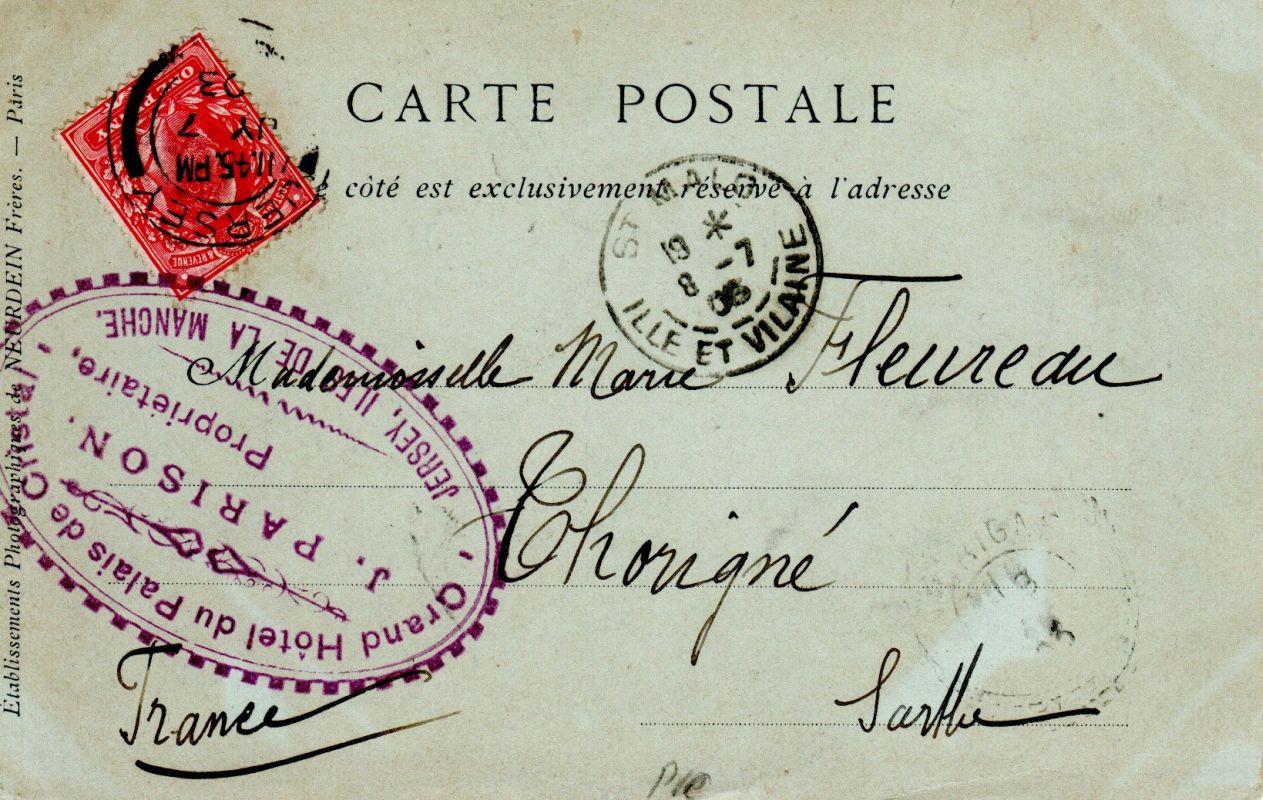 CARTE POSTALE
côté est exclusivement réservé à l'adresse
Établissements Photographiques de NEURDEIN Frères. — Paris
ONE PENNY
& REVENUE
JERSEY
11.45 PM
JY 7
03
ST MALO
19 * 7
8 - 03
ILLE ET VILAINE
Grand Hôtel du Palais de Cristal
J. PARISON.
Propriétaire,
JERSEY, ILES DE LA MANCHE.
Mademoiselle Marie Fleureau
Thorigné
Sarthe
France